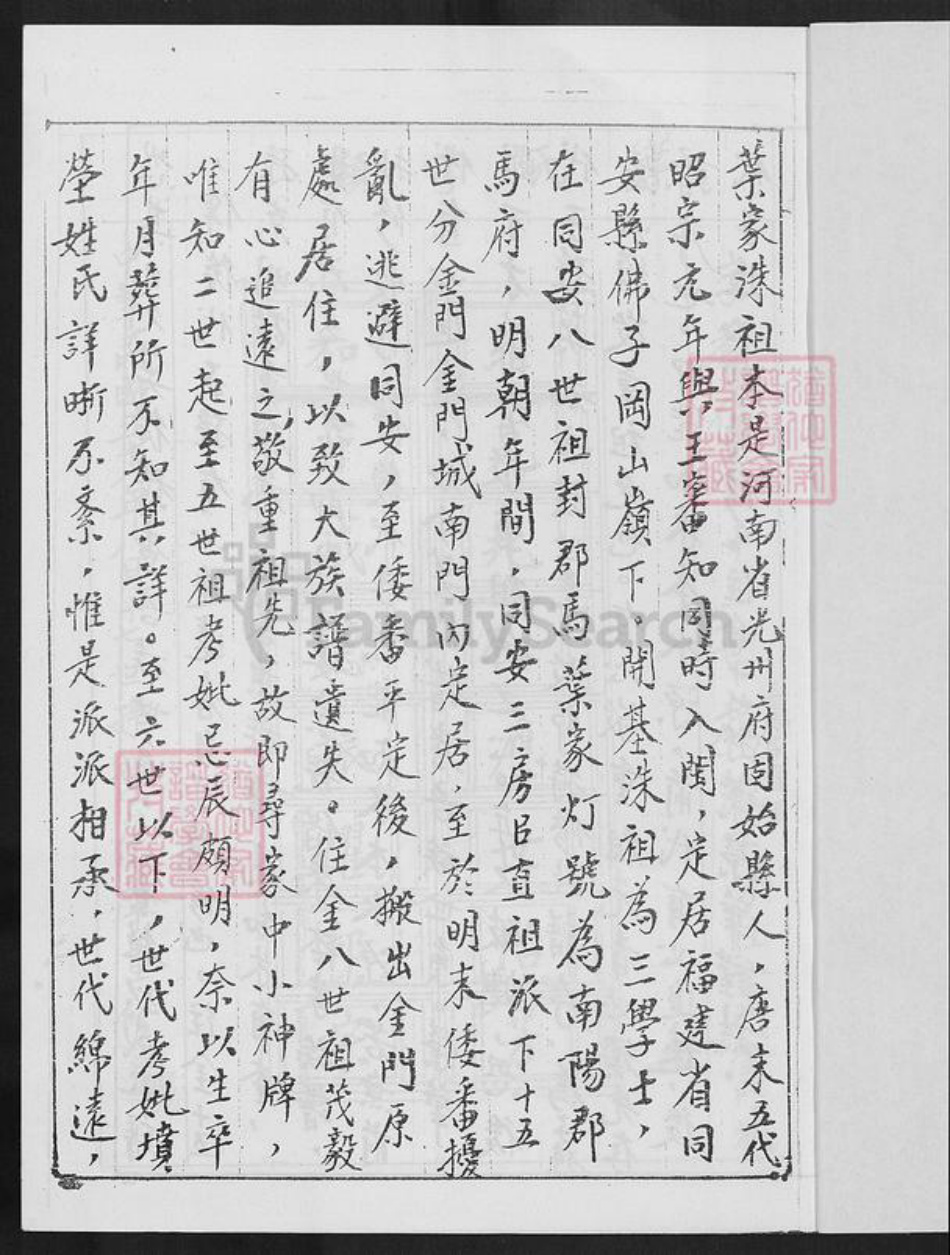 葉家洙祖本是河南省光州府固始縣人，唐末五代
昭宗元年與王審知同時入閩，定居福建省同
安縣佛子岡山嶺下。開基洙祖為三學士，
在同安八世祖封郡馬葉家灯號為南陽郡
馬府，明朝年間，同安三房臣直祖派下十五
世分金門金門城南門內定居，至於明末倭番擾
亂，逃避同安，至倭番平定後，搬出金門原
處居住，以致大族譜遺失。住金八世祖茂毅
有心追遠之，敬重祖先，故即尋家中小神牌，
唯知二世起至五世祖考妣忌辰頗明，奈以生卒
年月葬所不知其詳。至六世以下，世代考妣墳
塋姓氏詳晰不紊，惟是派派相承，世代綿遠，
FamilySearch